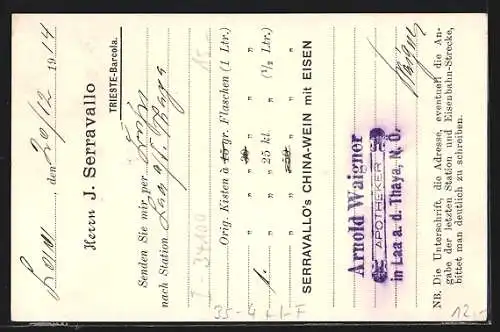 Laa, den 20/12 1914
Herrn J. Serravallo
TRIESTE-Barcola.
Senden Sie mir per
nach Station Laa a/d. Thaya
Orig. Kisten à 15 gr. Flaschen (1 Ltr.)
" " " 30 " " "
1. " " 25 kl. " (½ Ltr.)
" " " 50 " " "
SERRAVALLO's CHINA-WEIN mit EISEN
Arnold Waigner
APOTHEKER
in Laa a. d. Thaya, N. Ö.
NB. Die Unterschrift, die Adresse, eventuell die An-
gabe der letzten Station und Eisenbahn-Strecke,
bittet man deutlich zu schreiben.
15.-
I-34100
35-4 + I-F
12.-